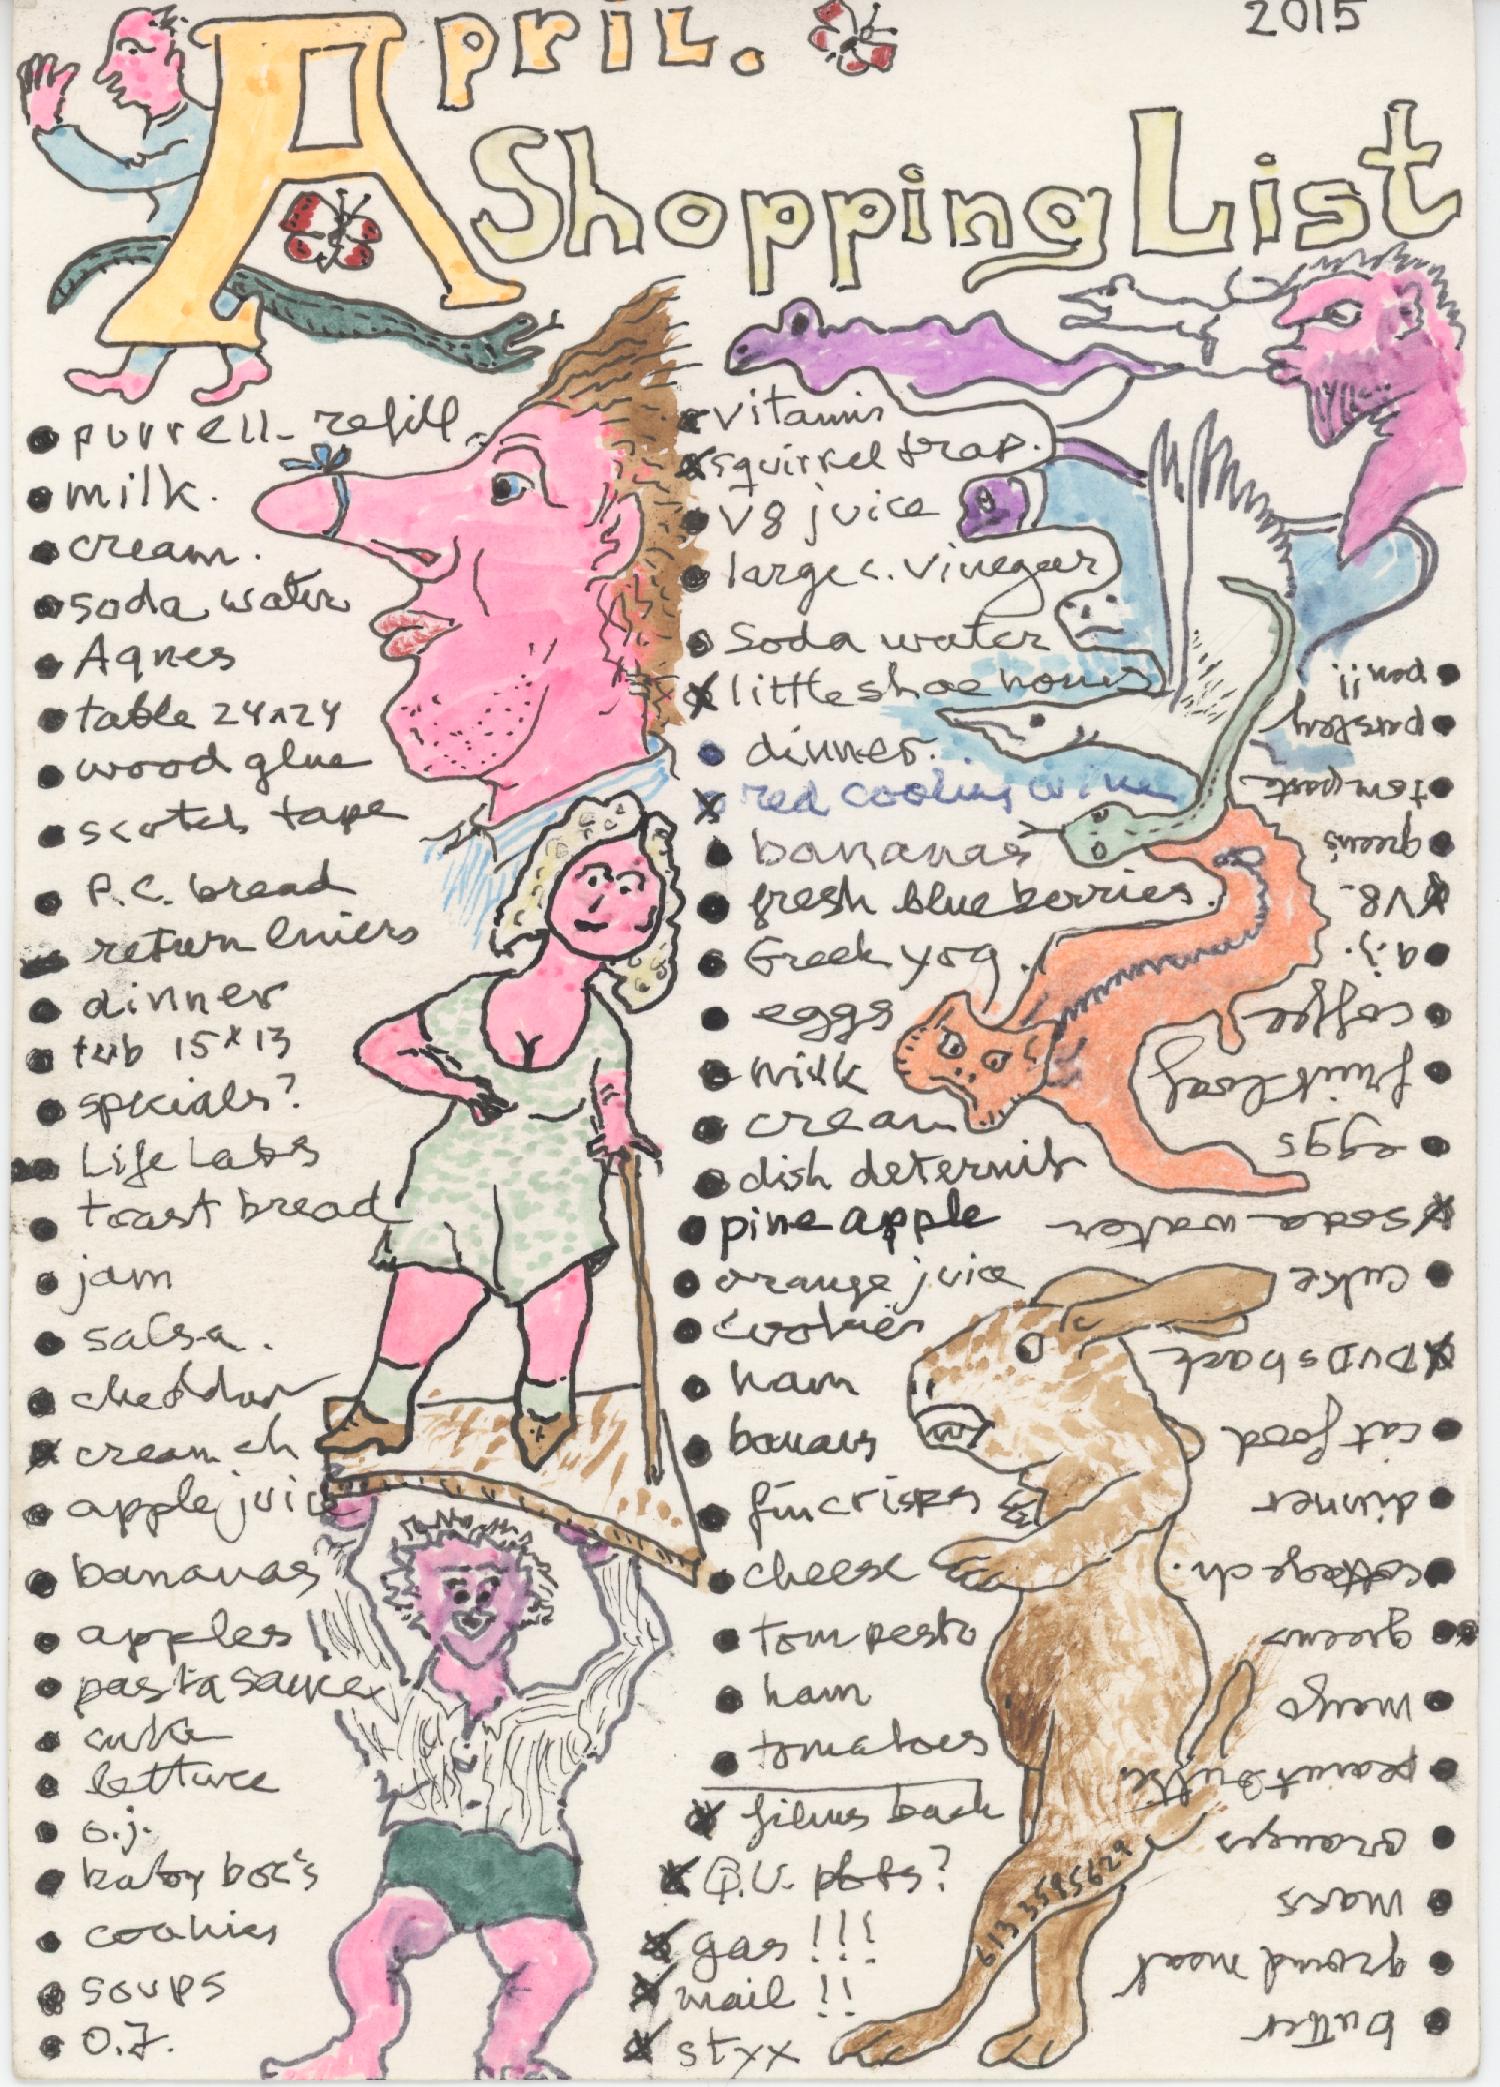 April. 2015
Shopping List
purrell refill
milk.
cream.
soda water
Agnes
table 24x24
wood glue
scotch tape
P.C. bread
return liniers
dinner
tub 15x13
specials?
Life Labs
toast bread
jam
salsa.
cheddar
cream ch
apple juice
bananas
apples
pasta sauce
cuke
lettuce
o.j.
baby boc's
cookies
soups
O.J.
vitamin
squirrel trap.
V8 juice
large c. vinegar
Soda water
little shoe horns
dinner.
red cooking wine
bananas
fresh blueberries.
Greek yog.
eggs
milk
cream
dish deternit
pineapple
orange juice
cookies
ham
banans
fin crisps
cheese
tom pesto
ham
tomatoes
films back
Q.V. pbts?
gas !!!
mail !!
styx
613 3585629
butter
ground meat
mars
oranges
peanut butter
mayo
greens
cottage ch.
dinner
cat food
DVDs back
cuke
soda water
eggs
fruit loaf
coffee
a.j.
V8.
greens
tom paste
parsley